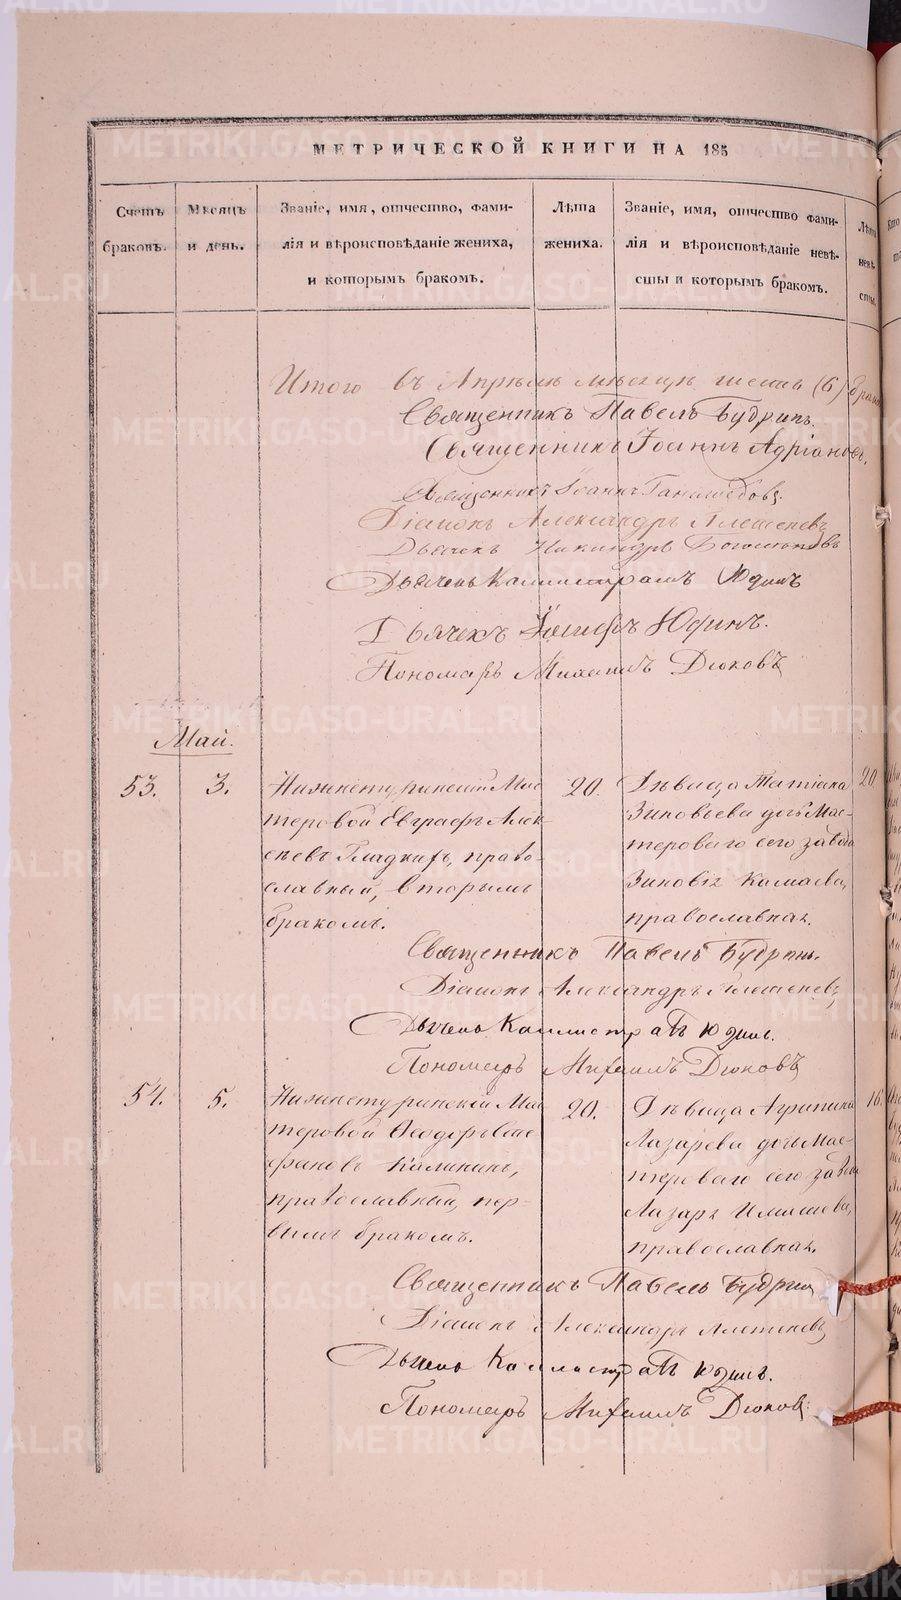 МЕТРИЧЕСКОЙ КНИГИ НА 185
Счетъ браковъ.
Мѣсяцъ и день.
Званіе, имя, отчество, фами-
лія и вѣроисповѣданіе жениха,
и которымъ бракомъ.
Лѣта жениха.
Званіе, имя, отчество фами-
лія и вѣроисповѣданіе невѣ-
сты и которымъ бракомъ.
Лѣта невѣ-
сты.
Итого въ Апрѣлѣ мѣсяцѣ шесть (6) брак
Священникъ Павелъ Будринъ.
Священникъ Іоаннъ Адріановъ.
Священникъ Іоаннъ
Діаконъ Александръ Плешковъ
Дьячекъ Никандръ
Дьячекъ Каллистратъ Юдинъ
Дьячекъ Іосифъ Юдинъ.
Пономарь Михаилъ Дюковъ
Май.
53.
3.
Нижнетуринскій Мас
теровой Евграфъ Алек
сѣевъ Гладкихъ, право-
славный, вторымъ
бракомъ.
20.
Дѣвица Татіана
Зиновьева дочь Мас-
терового сего завода
Зиновія Камаева,
православная.
20.
Священникъ Павелъ Будринъ.
Діаконъ Александръ Плешковъ
Дьячекъ Каллистратъ Юдинъ.
Пономарь Михаилъ Дюковъ
54.
5.
Нижнетуринскій Мас
теровой Ѳеодоръ Сте
фановъ Калининъ,
православный, пер-
вымъ бракомъ.
20.
Дѣвица Агрипина
Лазарева дочь Мас-
терового сего завода
Лазаря
православная.
16.
Священникъ Павелъ Будринъ
Діаконъ Александръ Плешковъ
Дьячекъ Каллистратъ Юдинъ.
Пономарь Михаилъ Дюковъ
METRIKI.GASO-URAL.RU